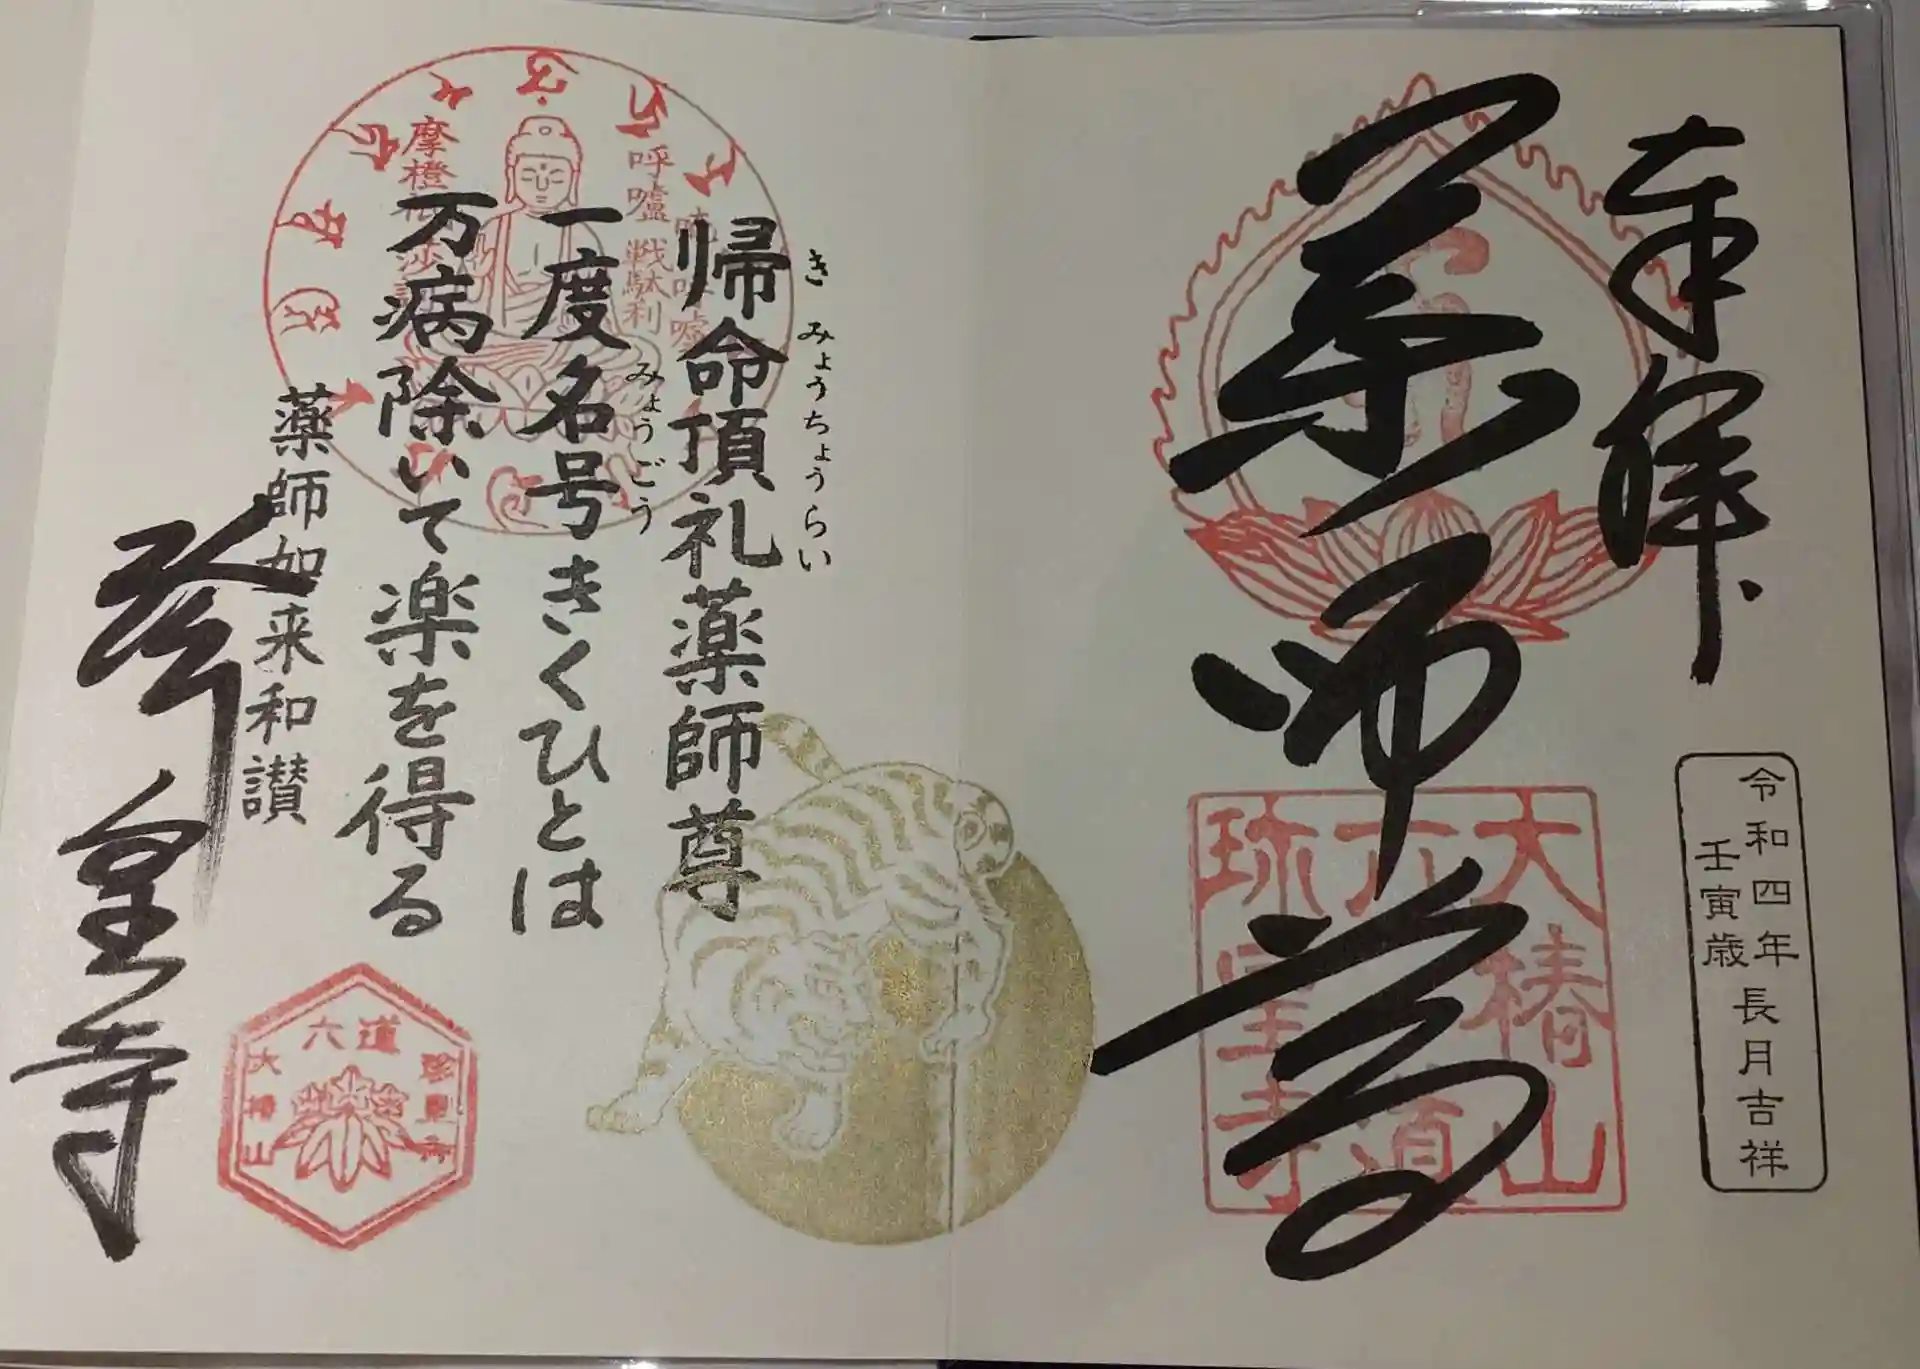 奉拝
令和四年長月吉祥
壬寅歳
薬師尊
大椿山
六道
珍皇寺
帰命頂礼薬師尊
きみょうちょうらい
一度名号きくひとは
みょうごう
万病除いて楽を得る
薬師如来和讃
珍皇寺
呼嚧 戦駄利
摩橙
六道
大椿山
珍皇寺